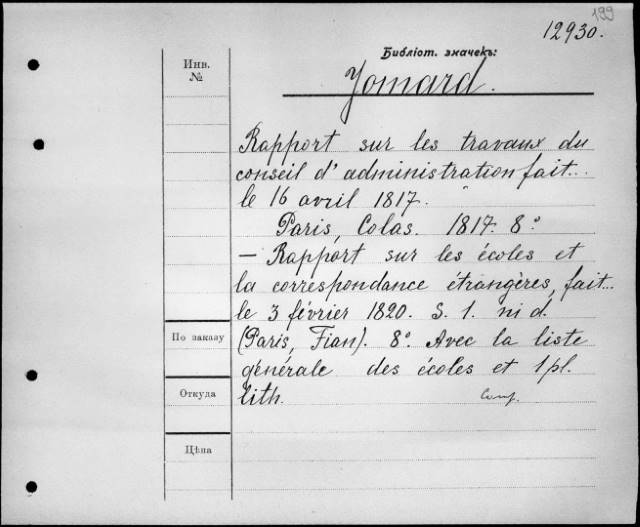 199
12930.
Библіот. значекъ:
Инв.
№
Jomard.
Rapport sur les travaux du
conseil d'administration fait...
le 16 avril 1817.
Paris, Colas. 1817. 8°
— Rapport sur les écoles et
la correspondance étrangères, fait...
le 3 février 1820. S. l. ni d.
(Paris, Fian). 8°. Avec la liste
générale des écoles et 1 pl.
lith.
По заказу
Откуда
Цѣна